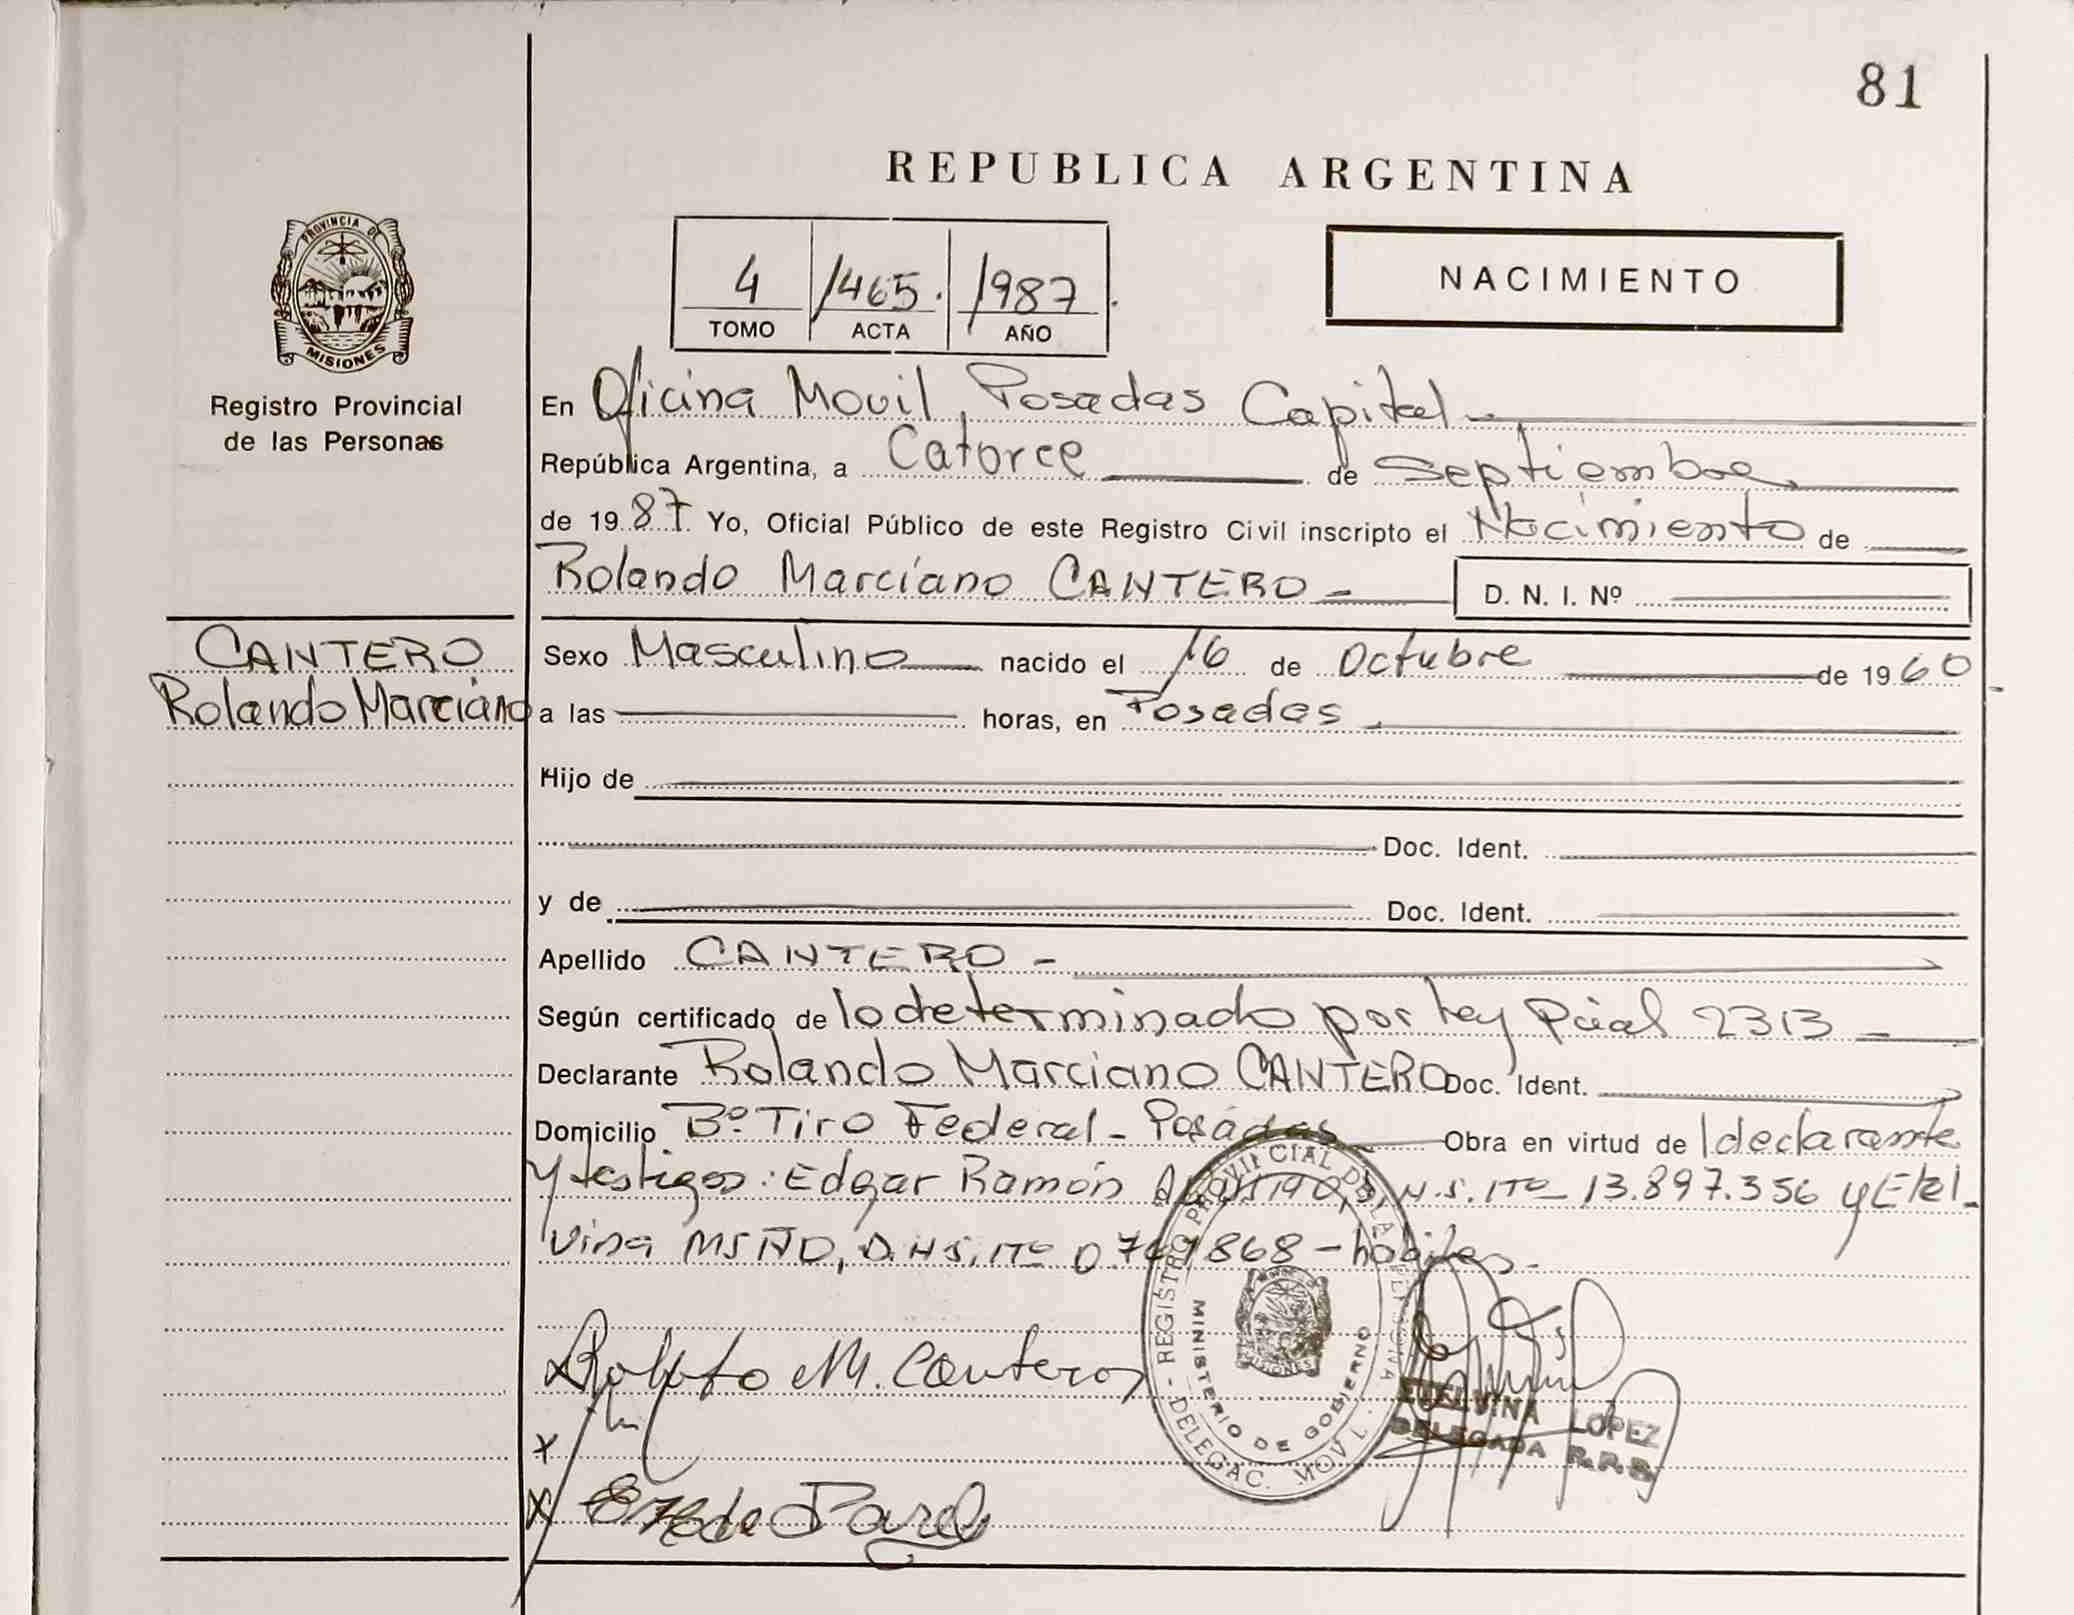 81
REPUBLICA ARGENTINA
PROVINCIA DE
MISIONES
Registro Provincial
de las Personas
4 1465. 1987.
TOMO ACTA AÑO
NACIMIENTO
En Oficina Movil, Posadas Capital -
República Argentina, a Catorce de Septiembre
de 1987. Yo, Oficial Público de este Registro Civil inscripto el Nacimiento de
Rolando Marciano CANTERO - D. N. I. Nº
CANTERO
Rolando Marciano
Sexo Masculino nacido el 16 de Octubre de 1960
a las horas, en Posadas.
Hijo de
Doc. Ident.
y de Doc. Ident.
Apellido CANTERO -
Según certificado de lo determinado por Ley Pcial 2313 -
Declarante Rolando Marciano CANTERO Doc. Ident.
Domicilio Bº Tiro Federal - Posadas Obra en virtud de l declarante
y testigos: Edgar Ramón 13.897.356 y Etel-
vina 868 - hábiles.
REGISTRO PROVINCIAL DE LAS PERSONAS
MINISTERIO DE GOBIERNO
MISIONES
DELEGAC. MOVIL
M. Cantero
x
x
ETELVINA LOPEZ
DELEGADA R.P.P.